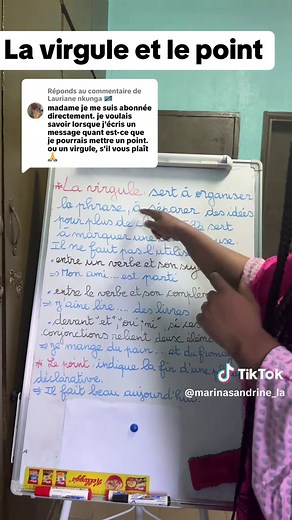 La virgule et le point
Réponds au commentaire de
Lauriane nkunga
madame je me suis abonnée
directement. je voulais
savoir lorsque j'écris un
message quant est-ce que
je pourrais mettre un point.
ou un virgule, s'il vous plaît
* La virgule, sert à organiser
la phrase, à séparer des idées
pour plus de sert
à marquer une
Il ne faut pas l'utilis
• entre un verbe et son suj
⇒ Mon ami.... est parti
• entre le verbe et son complém
⇒ J'aime lire.... des livres
• devant "et", "ou", "ni", si ces
conjonctions relient deux élém
⇒ je mange du pain... et du froma
* Le point indique la fin d'une
déclarative.
⇒ Il fait beau aujourd'hui.
Kellogg's
TikTok
@marinasandrine_la